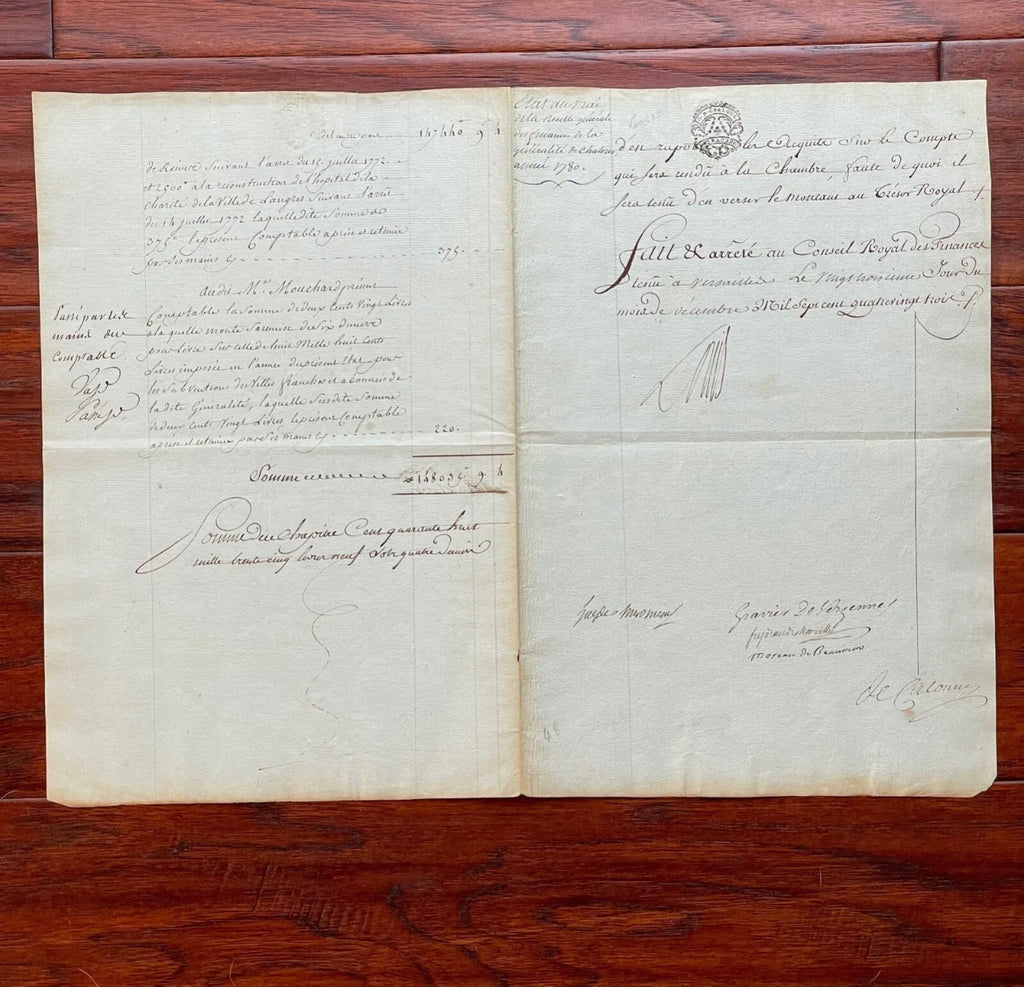 De l'autre part 147440 9 4
de Reims Suivant l'arret du 15 juillet 1772
et 2500 a la reconstruction de l'hopital de la
charité de la Ville de Langres Suivant l'arret
du 14 juillet 1772 laquelle dite Somme de
375 le present Comptable a prise et retenue
par Ses mains Cy 375
Audit Me Mouchard present
Comptable la Somme de deux Cents Vingt Livres
a laquelle monte Sa remise des Six deniers
pour Livre Sur celle de huit Mille huit Cents
Livres imposée en l'année du present Etat pour
les Subventions des Villes franches et abonnées de
la dite Généralité, laquelle Susdite Somme
de deux Cents Vingt Livres le present Comptable
a prise et retenue par Ses mains Cy 220
Passé par les
mains du
Comptable
Somme 148035 9 4
Somme du Chapitre Cent quarante huit
mille trente cinq livres neuf Sols quatre deniers
Etat au Vrai
de la Recette générale
des finances de la
généralité de Chalons
année 1780.
d'en rapporter la Quitte Sur le Compte
qui Sera rendu à la Chambre faute de quoi il
Sera tenu d'en verser le montant au Trésor Royal
Fait & arrêté au Conseil Royal des Finances
tenu à Versailles Le Vingt troisieme Jour du
mois de décembre Mil Sept cent quatre vingt trois
Louis
Hue de Miromenil
Gravier De Vergennes
Moreau de Beaumont
de Calonne